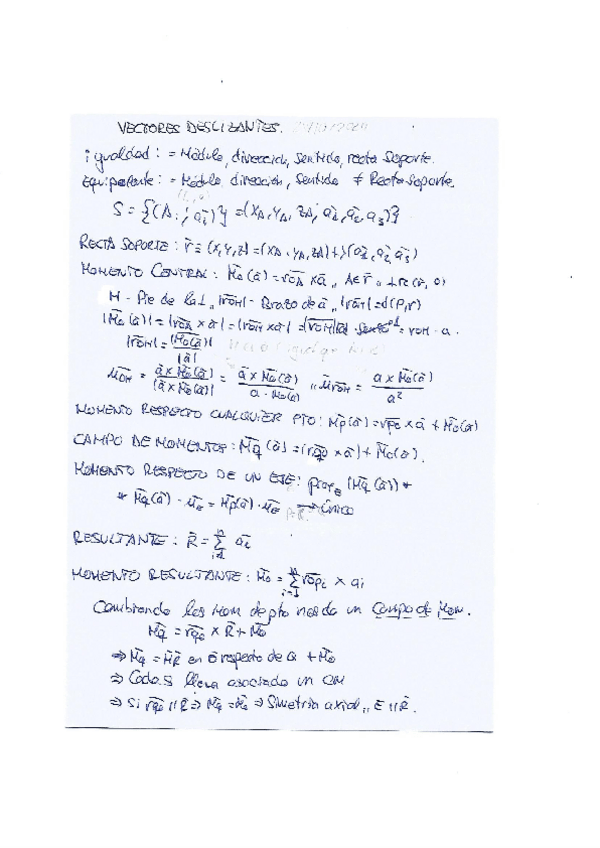 VECTORES DESLIZANTES.
igualdad: = Módulo, dirección, sentido, recta soporte.
Equipolente: = Módulo dirección, sentido ≠ Recta soporte.
S = {(A; a̅i)} = (xA, yA, zA; a1, a2, a3)}
RECTA SOPORTE: r̅ ≡ (x,y,z) = (xA, yA, zA) + λ(a1, a2, a3)
MOMENTO CENTRAL: M̅o(a̅) = r̅OA × a̅ ,, A∈r
H - Pie de la ⊥ ,, |r̅OH| - Brazo de a̅ ,, |r̅OH| = d(P,r)
|M̅o(a̅)| = |r̅OA × a̅| = |r̅OH × a̅| = |r̅OH||a̅| = rOH · a.
|r̅OH| = |M̅o(a̅)| / |a̅|
μ̅OH = a̅ × M̅o(a̅) / |a̅ × M̅o(a̅)| = a̅ × M̅o(a̅) / a · Mo(a) ,, r̅OH = a × M̅o(a̅) / a²
MOMENTO RESPECTO CUALQUIER PTO: M̅p(a̅) = r̅PO × a̅ + M̅o(a̅)
CAMPO DE MOMENTOS: M̅Q(a̅) = (r̅QO × a̅) + M̅o(a̅).
MOMENTO RESPECTO DE UN EJE: proyE (M̅Q(a̅)) *
* M̅Q(a̅) · μ̅E = M̅p(a̅) · μ̅E → único
RESULTANTE: R̅ = Σ a̅i
MOMENTO RESULTANTE: M̅o = Σ r̅OPi × ai
Cambiando los Mom de pto nos da un Campo de Mom.
M̅Q = r̅QO × R̅ + M̅o
⇒ M̅Q = M̅R en O respecto de Q + M̅o
⇒ Cada S lleva asociado un CM
⇒ Si r̅QO || R̅ ⇒ M̅Q = M̅o ⇒ Simetría axial ,, E || R̅.